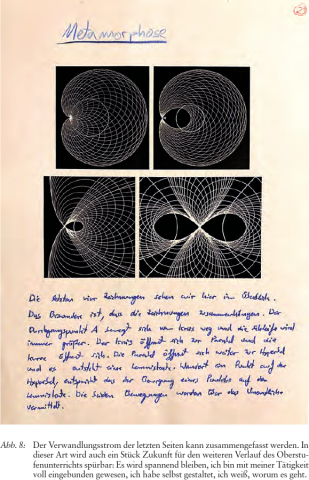 29
Metamorphose
Die letzten vier Zeichnungen sehen wir hier im Überblick.
Das Besondere ist, dass die Zeichnungen zusammenhängen. Der
Durchgangspunkt A bewegt sich vom Kreis weg und die Schleife wird
immer größer. Der Kreis öffnet sich zur Parabel und die
Kurve öffnet sich. Die Parabel öffnet sich weiter zur Hyperbel
und es entsteht eine Lemniskate. Wandert ein Punkt auf der
Hyperbel, entspricht das der Bewegung eines Punktes auf der
Lemniskate. Die beiden Bewegungen werden über das Unendliche
vermittelt.
Abb. 8: Der Verwandlungsstrom der letzten Seiten kann zusammengefasst werden. In
dieser Art wird auch ein Stück Zukunft für den weiteren Verlauf des Oberstu-
fenunterrichts spürbar: Es wird spannend bleiben, ich bin mit meiner Tätigkeit
voll eingebunden gewesen, ich habe selbst gestaltet, ich weiß, worum es geht.